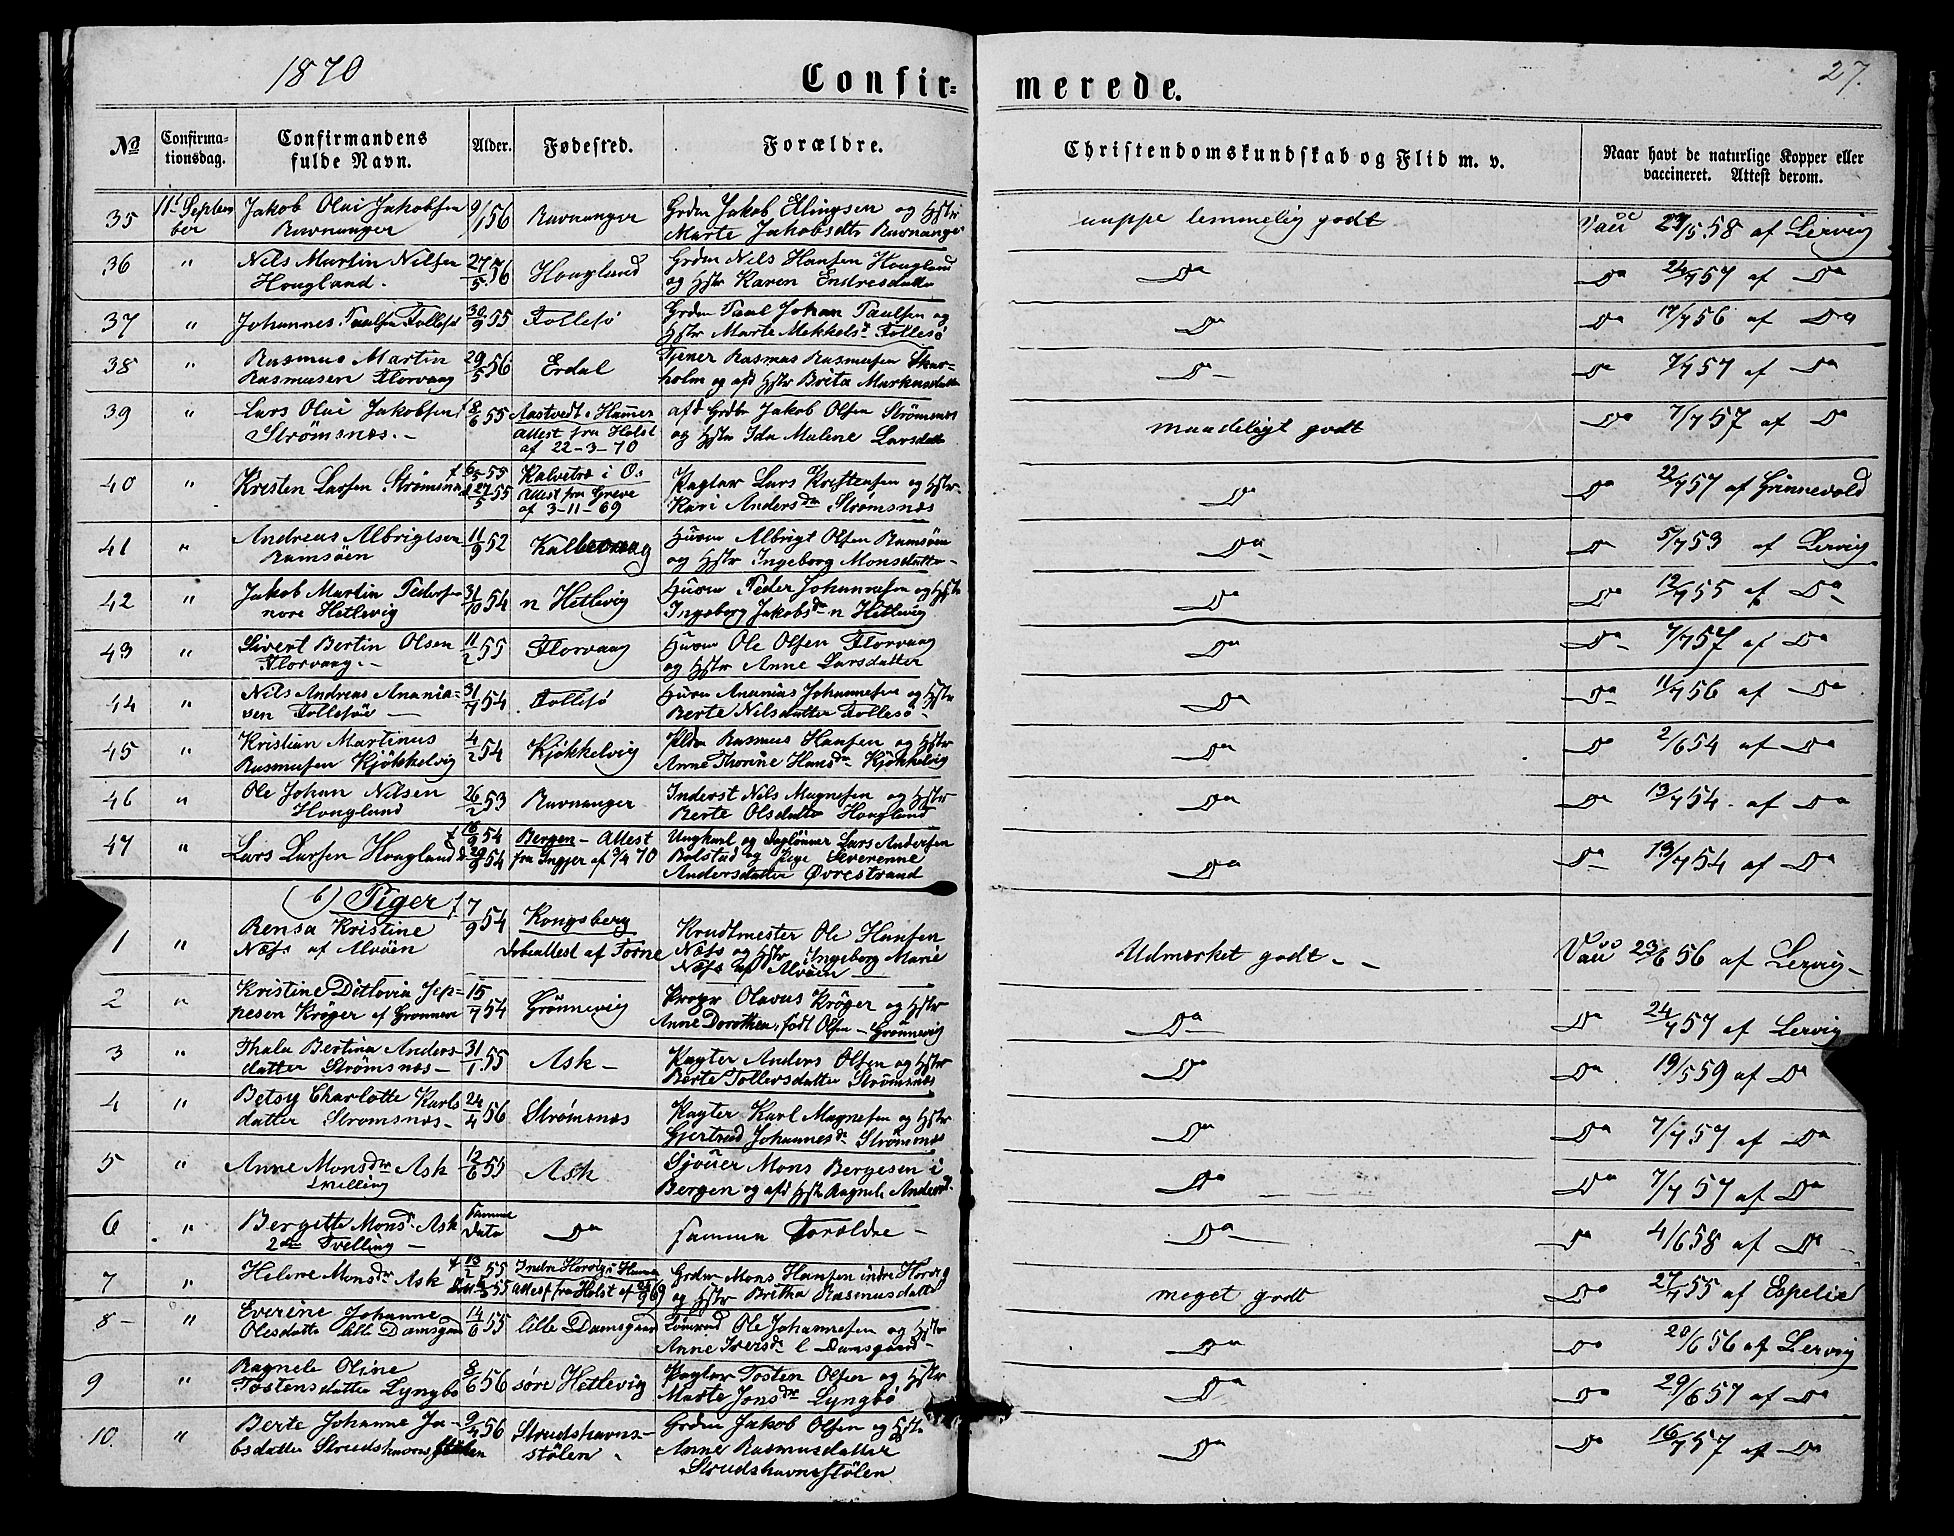 1870
Confir-
merede.
27.
No
Confirma-
tionsdag.
Confirmandens
fulde Navn.
Alder.
Fødested.
Forældre.
Christendomskundskab og Flid m. v.
Naar havt de naturlige Kopper eller
vaccineret. Attest derom.
35 11t Septem Jakob Olai Jakobsen 9/1 56 Ravnanger Grdm Jakob Ellingsen og Hstr
ber Ravnanger Marte Jakobsdtr Ravnanger temmelig godt Vacc 29/5 58 af Lervig
36 " Nils Martin Nilsen 27/5 56 Hougland Grdm Nils Hansen Hougland
Hougland. og Hstr Karen Endresdatter Do Do 24/7 57 af Do
37 " Johannes Paulsen Follesø 30/9 55 Follesø Grdm Paul Johan Paulsen og
Hstr Marte Mekkelsd Follesø Do Do 17/7 56 af Do
38 " Rasmus Martin 29/5 56 Erdal Tjener Rasmus Rasmusen Skar-
Rasmusen Florvaag holm og afd Hstr Brita Markusdatter Do Do 7/7 57 af Do
39 " Lars Olai Jakobsen f 8/6 55 Aastvedt i Hammer afd Grdbr Jakob Olsen Strømsnæs
Strømsnæs. Attest fra Holst og Hstr Ida Malene Larsdatter maadeligt godt Do 7/7 57 af Do
af 22-3-70
40 " Kresten Larsen Strømsnæs f 6/5 55 Kalvetræ i O. Pagtar Lars Kristensen og Hstr
d 27/5 55 Attest fra Greve Kari Andersdr Strømsnæs Do Do 22/7 57 af Grinnevold
af 3-11-69
41 " Andreas Albrigtsen 11/9 52 Kalhevaag Husm Albrigt Olsen Ramsøen
Ramsøen og Hstr Ingeborg Monsdatter Do Do 5/7 53 af Lervig
42 " Jakob Martin Pedersen 31/10 54 n Hetlevig Husm Peder Johannesen og Hstr
nore Hetlevig Ingeborg Jakobsdr n Hetlevig Do Do 12/7 55 af Do
43 " Sivert Bertin Olsen 11/2 55 Florvaag Husm Ole Olsen Florvaag
Florvaag. og Hstr Anne Larsdatter Do Do 7/7 57 af Do
44 " Nils Andreas Anania- 31/7 54 Follesø Husm Ananias Johannesen og Hstr
sen Follesøe Berte Nilsdatter Follesø Do Do 11/7 56 af Do
45 " Kristian Martinus 4/2 54 Kjøkkelvig Pldm Rasmus Hansen og Hstr
Rasmusen Kjøkkelvig Anne Thorine Hansdr Kjøkkelvig Do Do 2/6 54 af Do
46 " Ole Johan Nilsen 26/2 53 Ravnanger Inderst Nils Magnesen og Hstr
Hougland Berte Olsdatter Hougland Do Do 13/7 54 af Do
47 " Lars Larsen Hougland f 16/9 54 Bergen - Attest Ungkarl og Dagløнner Lars Andersen
d 29/9 54 fra Ingjer af 3/4 70 Bolstad og Pige Severenne
Andersdatter Øvrestrand Do Do 13/7 54 af Do
b) Piger
1 " Rensa Kristine f 7/9 54 Kongsberg Krudtmester Ole Hansen
Næss af Alvøen Dobeattest af Torne Næss og Hstr Ingeborg Marie
Næss af Alvøen Udmærket godt Vacc 23/6 56 af Lervig
2 " Kristine Ditlovia Jep- 15/7 54 Grønnevig Propr Olavus Krøger og Hstr
pesen Krøger af Grønnevi Anne Dorothea, født Olsen - Grønnevig Do Do 24/7 57 af Lervig
3 " Thala Bertina Anders- 31/1 55 Ask Pagter Anders Olsen og Hstr
datter Strømsnæs Berte Tollersdatter Strømsnæs Do Do 19/5 59 af Do
4 " Betsy Charlotte Karls 24/4 56 Strømsnæs Pagter Karl Magnesen og Hstr
datter Strømsnæs Gjertrud Johannesdr Strømsnæs Do Do 7/7 57 af Do
5 " Anne Monsdtr Ask 12/6 55 Ask Sjouer Mons Bergesen i
Tvilling Bergen og afd Hstr Ragnele Andersd. Do Do 7/7 57 af Do
6 " Bergitte Monsd. Ask Samme Data Do samme Forældre
2den Tvelling Do Do 4/6 58 af Do
7 " Helene Monsdtr Ask f 13/2 55 Indre Hordvig i Hammer Grdm Mons Hansen indre Hordvig
Attest fra Holst af og Hstr Britha Rasmusdatter meget godt Do 27/7 55 af Espelid
8 " Everine Johanne 14/6 55 lille Damsgaard Tømrmd Ole Johannesen og Hstr
Olesdatter lille Damsgaard Anne Iversdr l Damsgaard Do Do 20/6 56 af Lervig
9 " Ragnele Oline 8/6 56 søre Hetlevig Pagtar Tosten Olsen og Hstr
Tostensdatter Lyngbø Marte Jonsdtr Lyngbø Do Do 29/6 57 af Do
10. " Berte Johanne Ja- 9/4 56 Strudshavns- Grdm Jakob Olsen og Hstr
obsdatter Strudshavnsstølen stølen Anne Rasmusdatter
Strudshavnsstølen Do Do 16/7 57 af Do